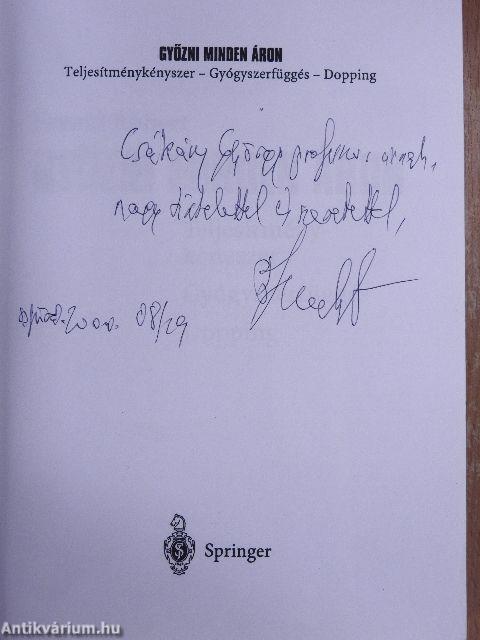 GYŐZNI MINDEN ÁRON
Teljesítménykényszer – Gyógyszerfüggés – Dopping
Csákány György professzor úrnak,
nagy tisztelettel és szeretettel,
2000. 08/29
Springer
Antikvárium.hu